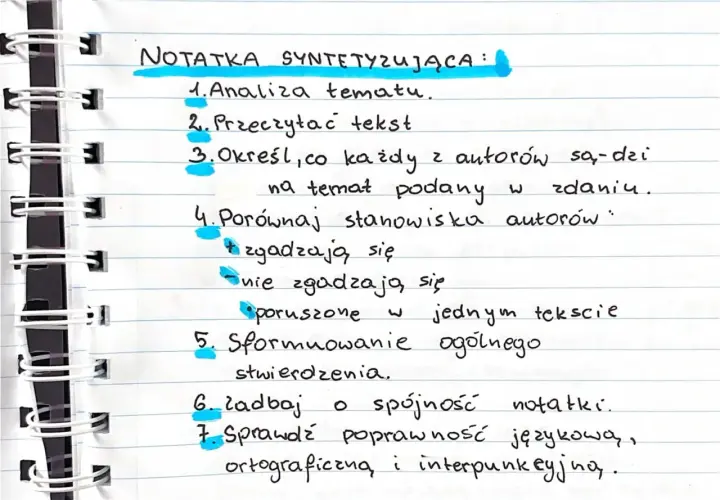 NOTATKA SYNTETYZUJĄCA:
1. Analiza tematu.
2. Przeczytać tekst
3. Określ, co każdy z autorów są-dzi
na temat podany w zdaniu.
4. Porównaj stanowiska autorów:
+ zgadzają się
- nie zgadzają się
• poruszone w jednym tekscie
5. Sformuowanie ogólnego
stwierdzenia.
6. Zadbaj o spójność notatki.
7. Sprawdź poprawność językową,
ortograficzną i interpunkcyjną.